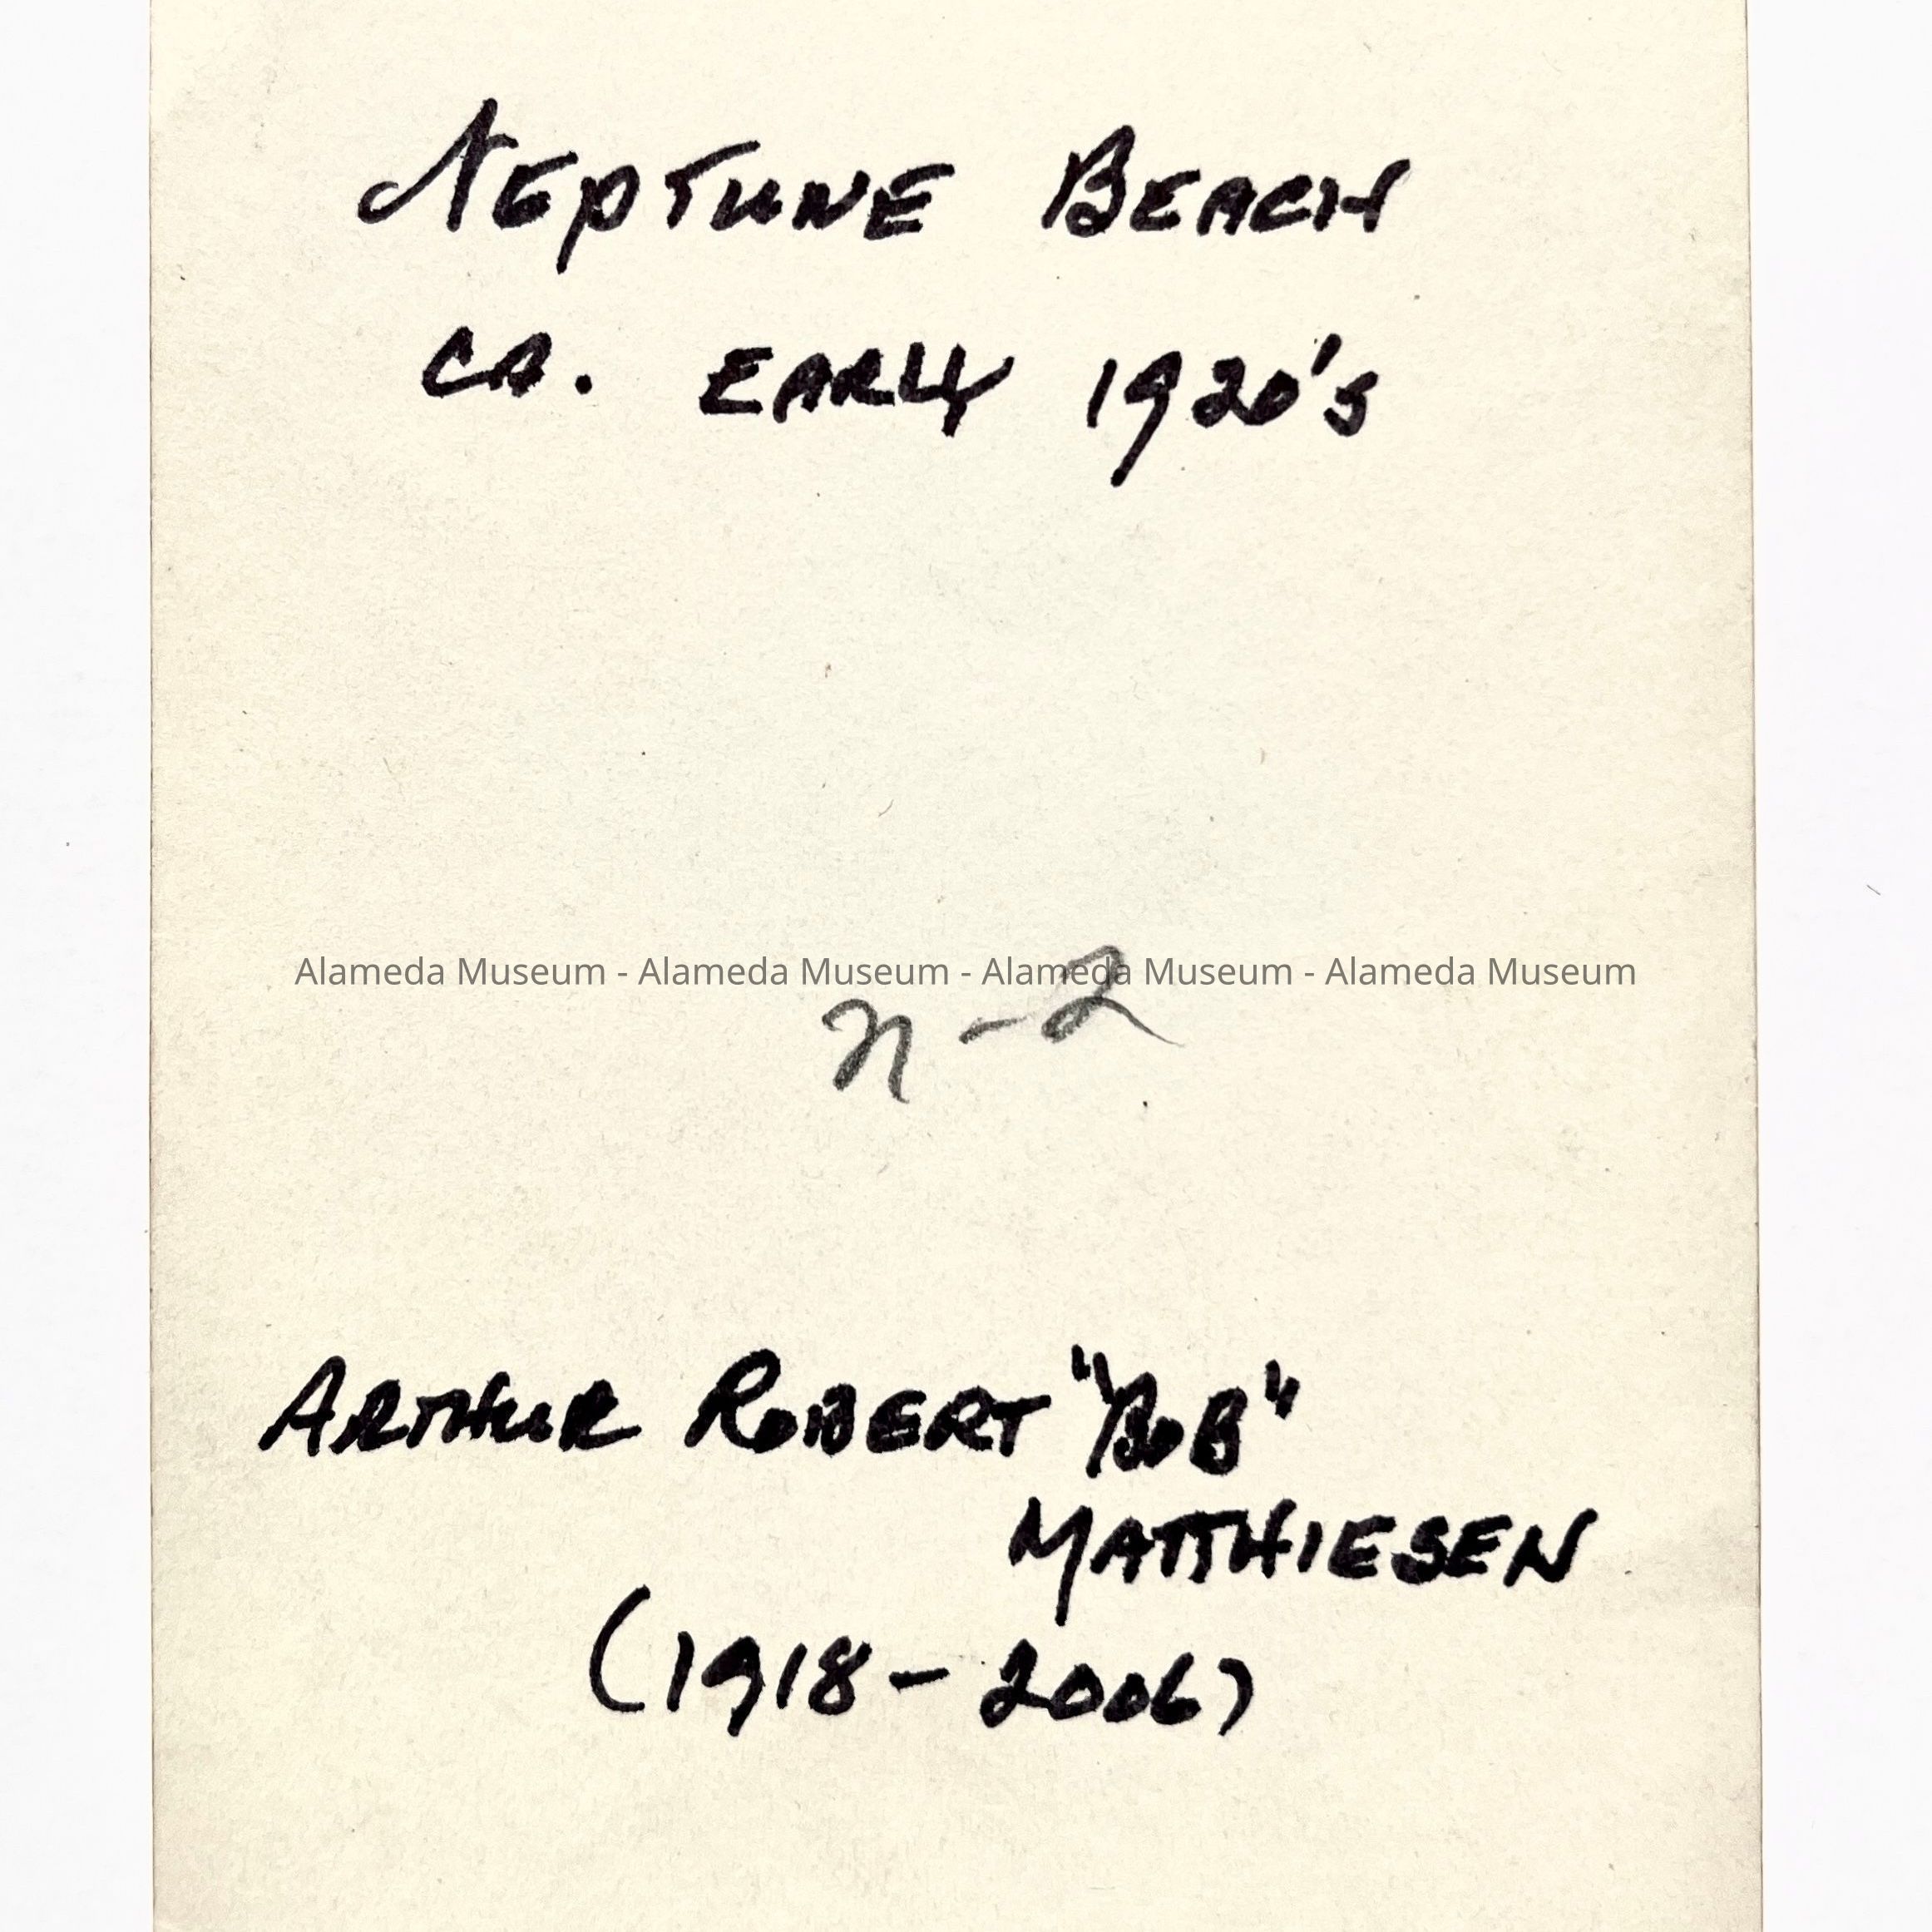 NEPTUNE BEACH
CA. EARLY 1920's
Alameda Museum - Alameda Museum - Alameda Museum - Alameda Museum
n-2
ARTHUR ROBERT "BOB"
MATTHIESEN
(1918-2006)